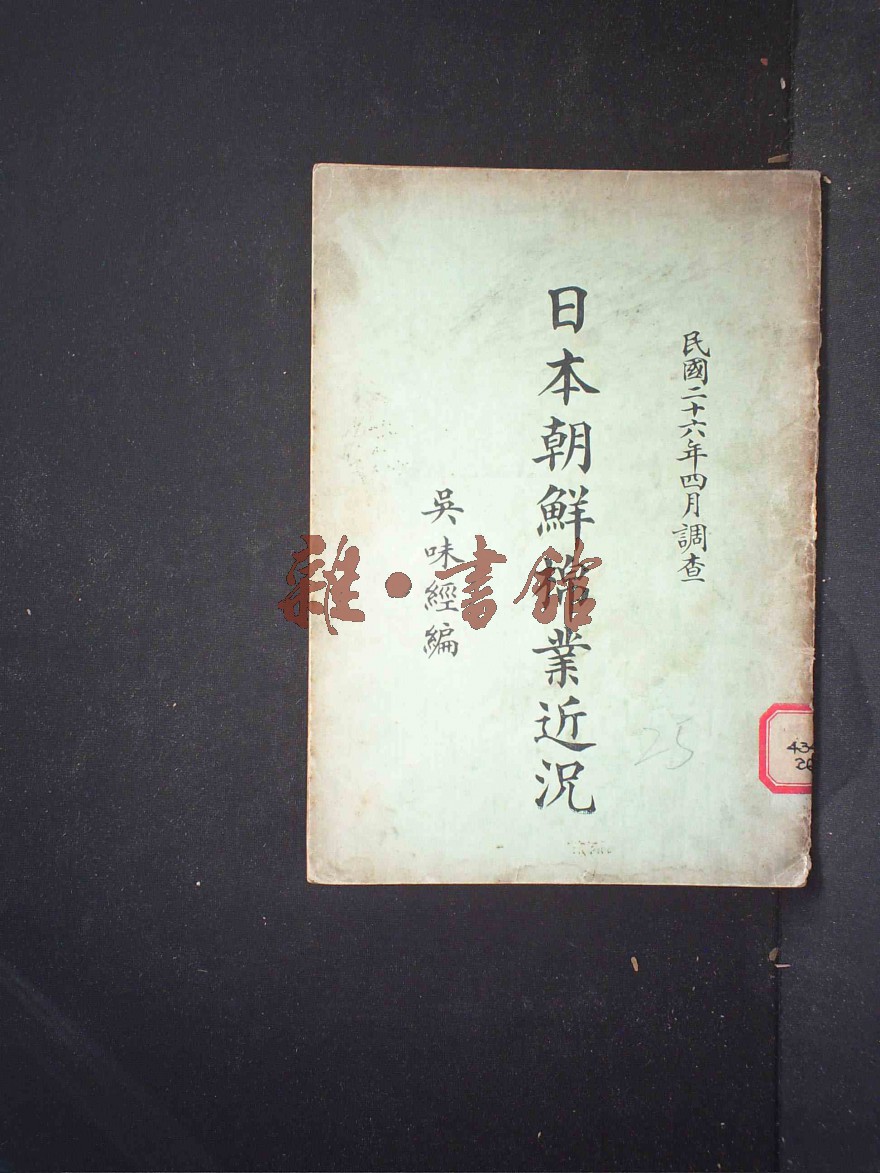 民國二十六年四月調查
日本朝鮮棉業近況
吳味經編
雜·書館
25
434